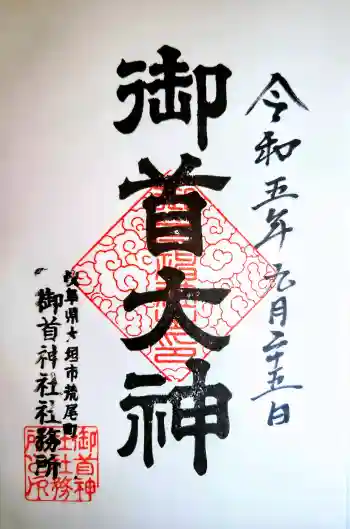 令和五年元月二十五日
御首大神
岐阜県大垣市荒尾町
御首神社社務所
御首神
社社務
所之印